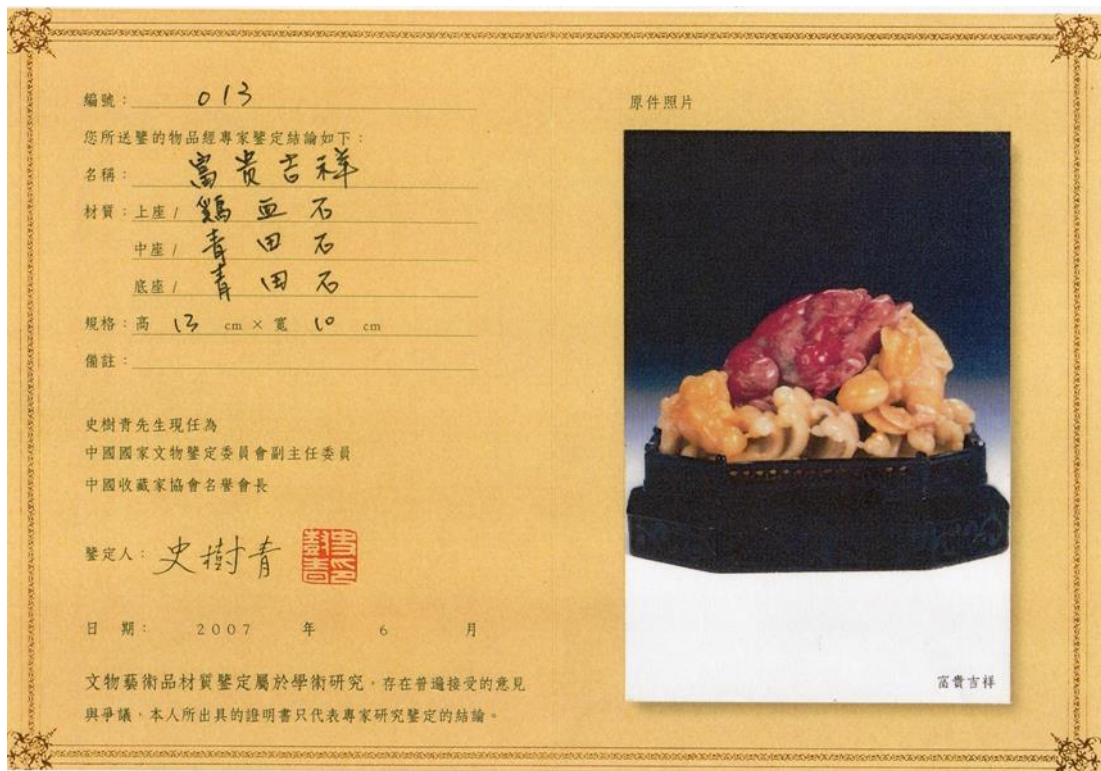 編號：013
您所送鑒的物品經專家鑒定結論如下：
名稱：富贵吉祥
材質：上座/ 鷄血石
中座/ 青田石
底座/ 青田石
規格：高 13 cm × 寬 10 cm
備註：
史樹青先生現任為
中國國家文物鑒定委員會副主任委員
中國收藏家協會名譽會長
鑒定人：史樹青
史印樹青
日期：2007年6月
文物藝術品材質鑒定屬於學術研究，存在普遍接受的意見
與爭議，本人所出具的證明書只代表專家研究鑒定的結論。
原件照片
富貴吉祥